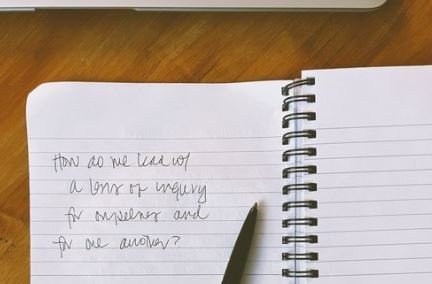 How do we lead w/
a lens of inquiry
for ourselves and
for one another?